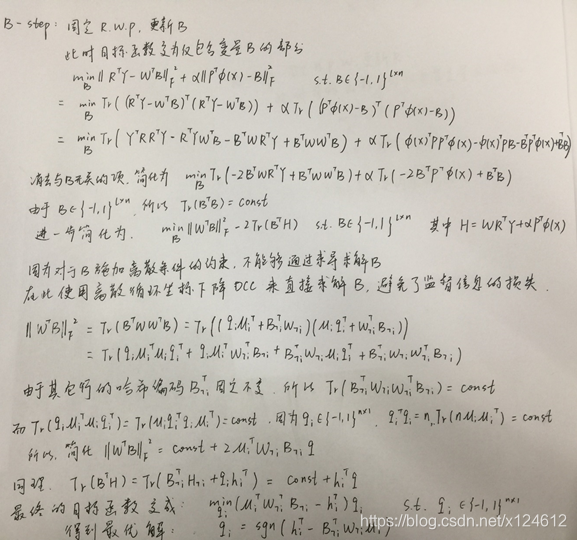 B-step: 固定 R.W.P, 更新B
此时目标函数变为仅包含变量B的部分
min_B ‖RᵀY - WᵀB‖²_F + α‖Pᵀφ(X) - B‖²_F s.t. B∈{-1,1}^{L×n}
= min_B Tr((RᵀY - WᵀB)ᵀ(RᵀY - WᵀB)) + αTr((Pᵀφ(X) - B)ᵀ(Pᵀφ(X) - B))
= min_B Tr(YᵀRRᵀY - RᵀYWᵀB - BᵀWRᵀY + BᵀWWᵀB) + αTr(φ(X)ᵀPPᵀφ(X) - φ(X)ᵀPB - BᵀPᵀφ(X) + BᵀB)
消去与B无关的项, 简化为 min_B Tr(-2BᵀWRᵀY + BᵀWWᵀB) + αTr(-2BᵀPᵀφ(X) + BᵀB)
由于 B∈{-1,1}^{L×n}, 所以 Tr(BᵀB) = const
进一步简化为. min_B ‖WᵀB‖²_F - 2Tr(BᵀH) s.t. B∈{-1,1}^{L×n} 其中 H = WRᵀY + αPᵀφ(X)
因为对于B施加离散条件的约束, 不能够通过求导求解B
在此使用离散循环坐标下降DCC来直接求解B, 避免了监督信息的损失.
‖WᵀB‖²_F = Tr(BᵀWWᵀB) = Tr((qᵢμᵢᵀ + Bᵀ¬ᵢW¬ᵢ)(μᵢqᵢᵀ + Wᵀ¬ᵢB¬ᵢ))
= Tr(qᵢμᵢᵀμᵢqᵢᵀ + qᵢμᵢᵀWᵀ¬ᵢB¬ᵢ + Bᵀ¬ᵢW¬ᵢμᵢqᵢᵀ + Bᵀ¬ᵢW¬ᵢWᵀ¬ᵢB¬ᵢ)
由于其它行的哈希编码Bᵀ¬ᵢ固定不变. 所以 Tr(Bᵀ¬ᵢW¬ᵢWᵀ¬ᵢB¬ᵢ) = const
而 Tr(qᵢμᵢᵀμᵢqᵢᵀ) = Tr(μᵢqᵢᵀqᵢμᵢᵀ) = const. 因为 qᵢ∈{-1,1}^{n×1}. qᵢᵀqᵢ = n, Tr(nμᵢμᵢᵀ) = const
所以. 简化 ‖WᵀB‖²_F = const + 2μᵢᵀWᵀ¬ᵢB¬ᵢq
同理. Tr(BᵀH) = Tr(Bᵀ¬ᵢH¬ᵢ + qᵢhᵢᵀ) = const + hᵢᵀq
最终的目标函数变成: min_{qᵢ} (μᵢᵀWᵀ¬ᵢB¬ᵢ - hᵢᵀ)qᵢ s.t. qᵢ∈{-1,1}^{n×1}
得到最优解: qᵢ = sgn(hᵢ - Bᵀ¬ᵢW¬ᵢμᵢ)
https://blog.csdn.net/x124612